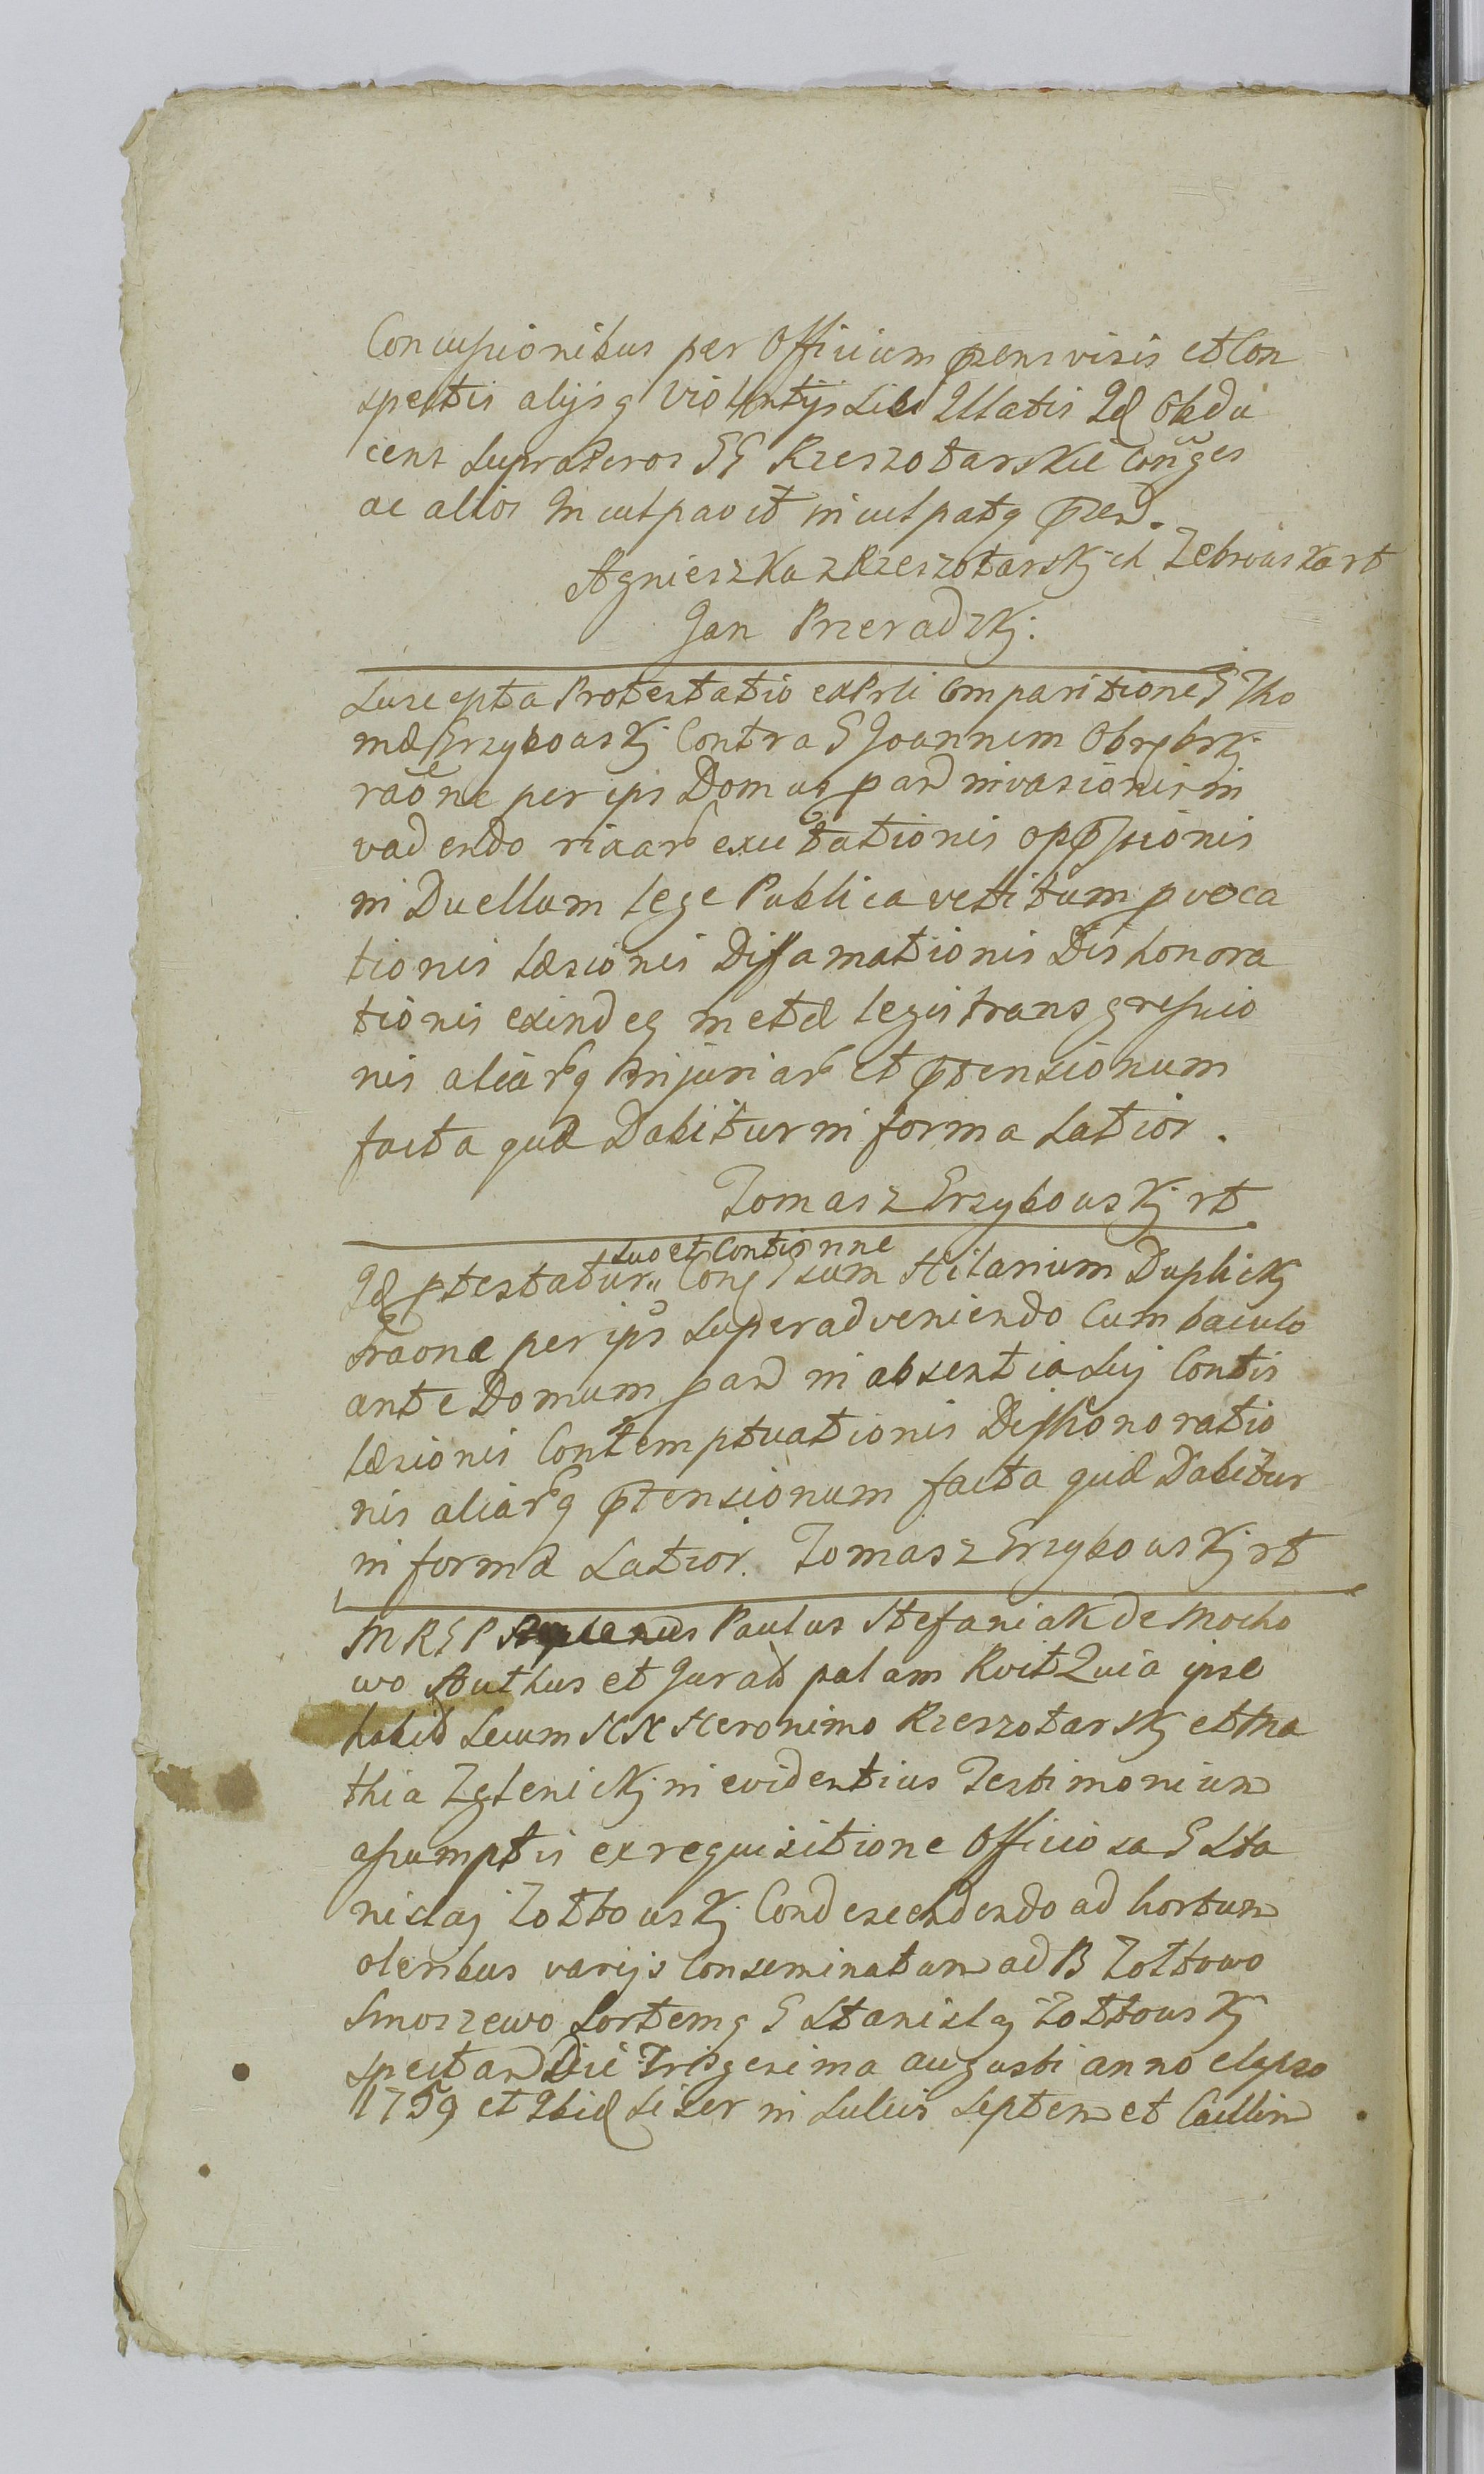 Concussionibus per Officium prens visis et Con
spectis alijsq Violentijs Sibi Illatis Id Obdu
cens Supra Gros GG Rzeszotarskie Conges
ac alios Inculpavit inculpatq pren.
Agnieszka z Rzeszotarskich Zebrouska rt
Jan Przeradzkj.
Suscepta Protestatio ex Prli Comparitione G Tho
mæ Grzybouskj Contra G Joannem Obrębskj
raõne per ips Domus pand invasionis in
vadendo rixar excitationis oppssionis
in Duellum lege Publica vetitum pvoca
tionis læsionis Diffamationis Dishonora
tionis exindeq metæ legis transgressio
nis aliarq Injuriar et ptensionum
facta quæ Dabitur in forma Latior.
Tomasz Grzybouskj rt
suo et Contis nne
Id ptestatur Cong Gsum Hilarium Duplickj
raone per ips Superadveniendo Cum baculo
ante Domum pand in absentia Suj Contis
læsionis Contemptuationis Dishonoratio
nis aliarq ptensionum facta quæ Dabitur
in forma Latior. Tomasz Grzybouskj rt
M R G P Paulus Stefaniak de Mocho
wo Authus et Jurad palam Rvit Quia ipse
habid Secum NN Heronimo Rzeszotarskj et Ma
thia Zglenickj in evidentius Testimonium
assumptis ex requisitione Officiosa G Sta
nislaj Zottouskj Condescendendo ad hortum
oleribus varijs Conseminatum ad B Zottowo
Smoszewo Sortemq G Stanislaj Zottouskj
spectan Die Trigesima augusti anno elapso
1759 et Ibid Siser in Sulcis Septem et Caullin